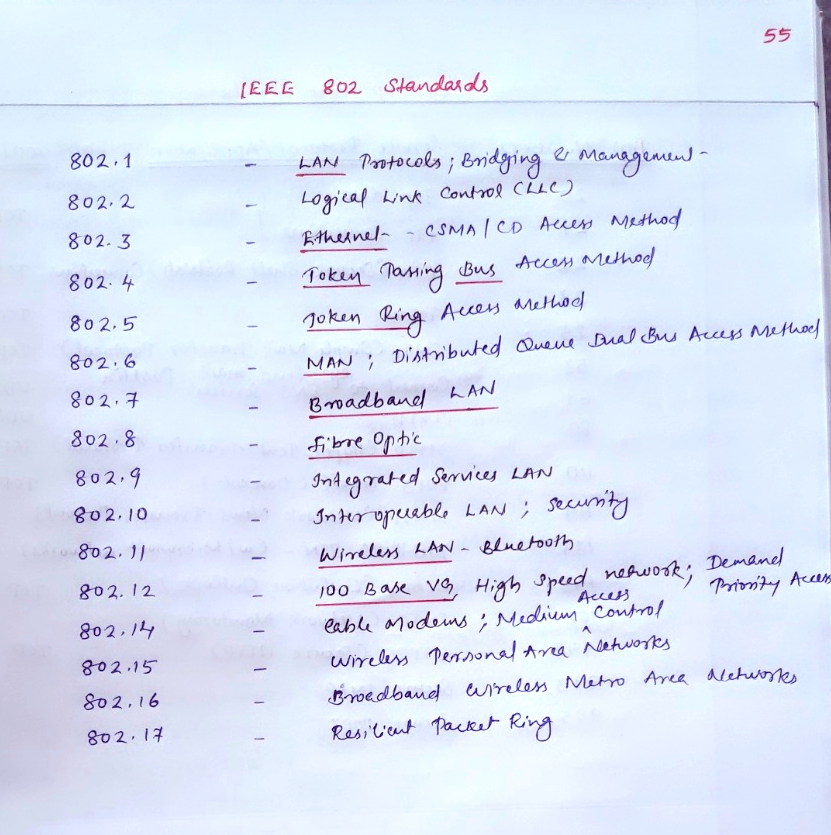 55
IEEE 802 Standards
802.1 - LAN Protocols; Bridging & Management-
802.2 - Logical Link Control (LLC)
802.3 - Ethernet - CSMA/CD Access Method
802.4 - Token Passing Bus Access Method
802.5 - Token Ring Access Method
802.6 - MAN; Distributed Queue Dual Bus Access Method
802.7 - Broadband LAN
802.8 - Fibre Optic
802.9 - Integrated Services LAN
802.10 - Interoperable LAN; Security
802.11 - Wireless LAN - Bluetooth
802.12 - 100 Base VG, High Speed network; Demand Priority Access
802.14 - Cable Modems; Medium Access Control
802.15 - Wireless Personal Area Networks
802.16 - Broadband Wireless Metro Area Networks
802.17 - Resilient Packet Ring